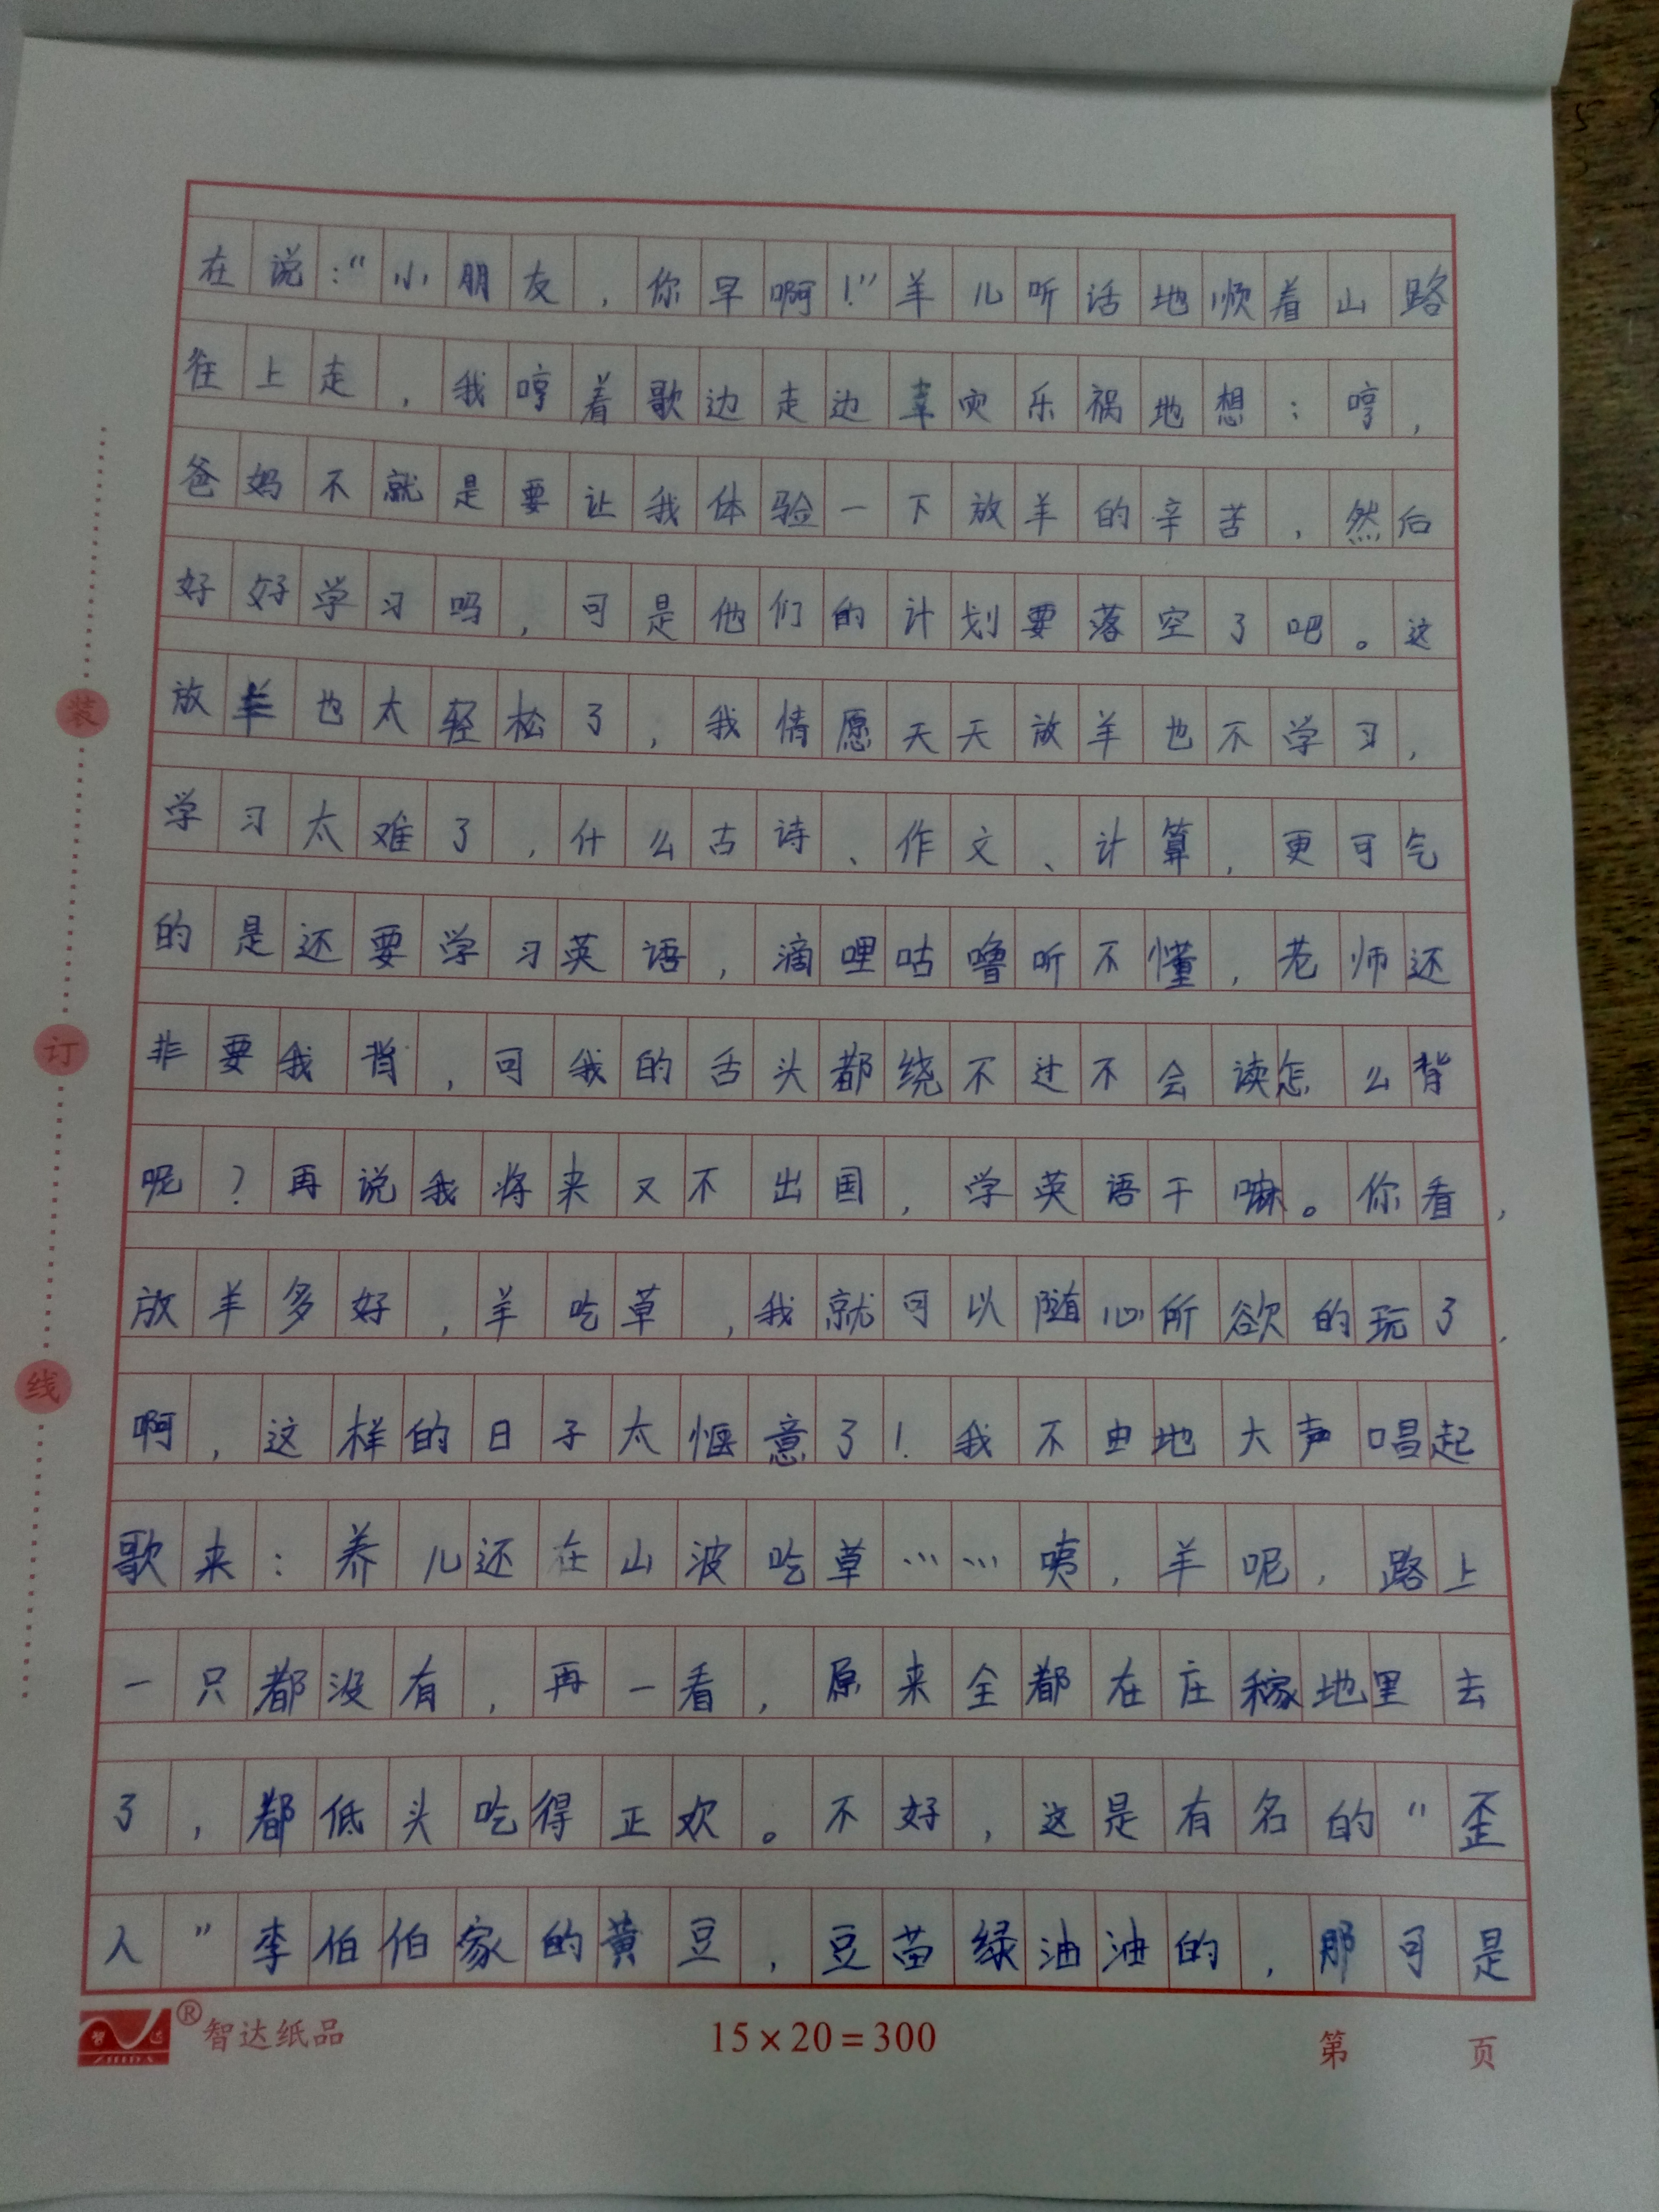 在说:“小朋友,你早啊!”羊儿听话地顺着山路
往上走,我哼着歌边走边幸灾乐祸地想:哼,
爸妈不就是要让我体验一下放羊的辛苦,然后
好好学习吗,可是他们的计划要落空了吧。这
放羊也太轻松了,我情愿天天放羊也不学习,
学习太难了,什么古诗、作文、计算,更可气
的是还要学习英语,滴哩咕噜听不懂,老师还
非要我背,可我的舌头都绕不过不会读怎么背
呢?再说我将来又不出国,学英语干嘛。你看,
放羊多好,羊吃草,我就可以随心所欲的玩了,
啊,这样的日子太惬意了!我不由地大声唱起
歌来:养儿还在山波吃草……咦,羊呢,路上
一只都没有,再一看,原来全都在庄稼地里去
了,都低头吃得正欢。不好,这是有名的“歪
人”李伯伯家的黄豆,豆苗绿油油的,那可是
装
订
线
智达
ZHIDA
®智达纸品
15×20=300
第 页